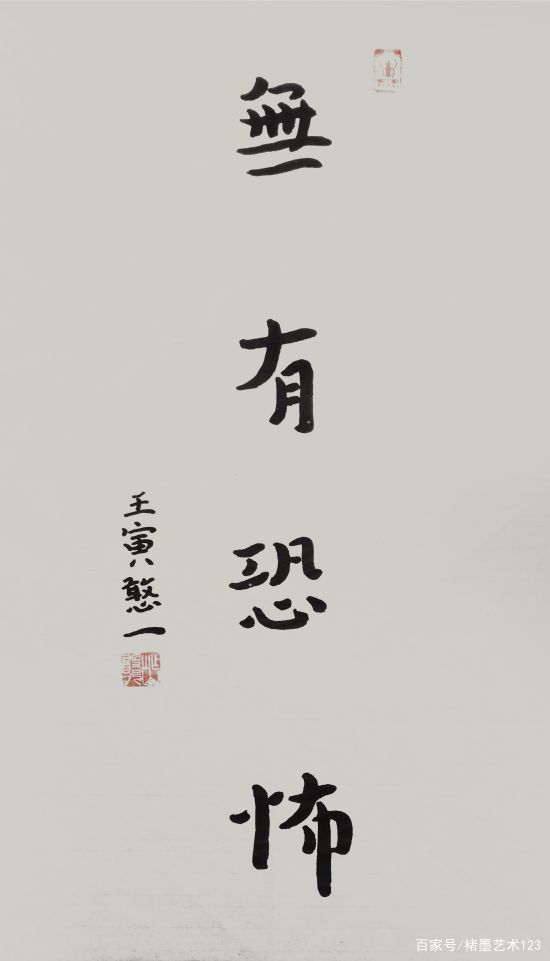 無有恐怖
壬寅憨一
百家号/楮墨艺术123